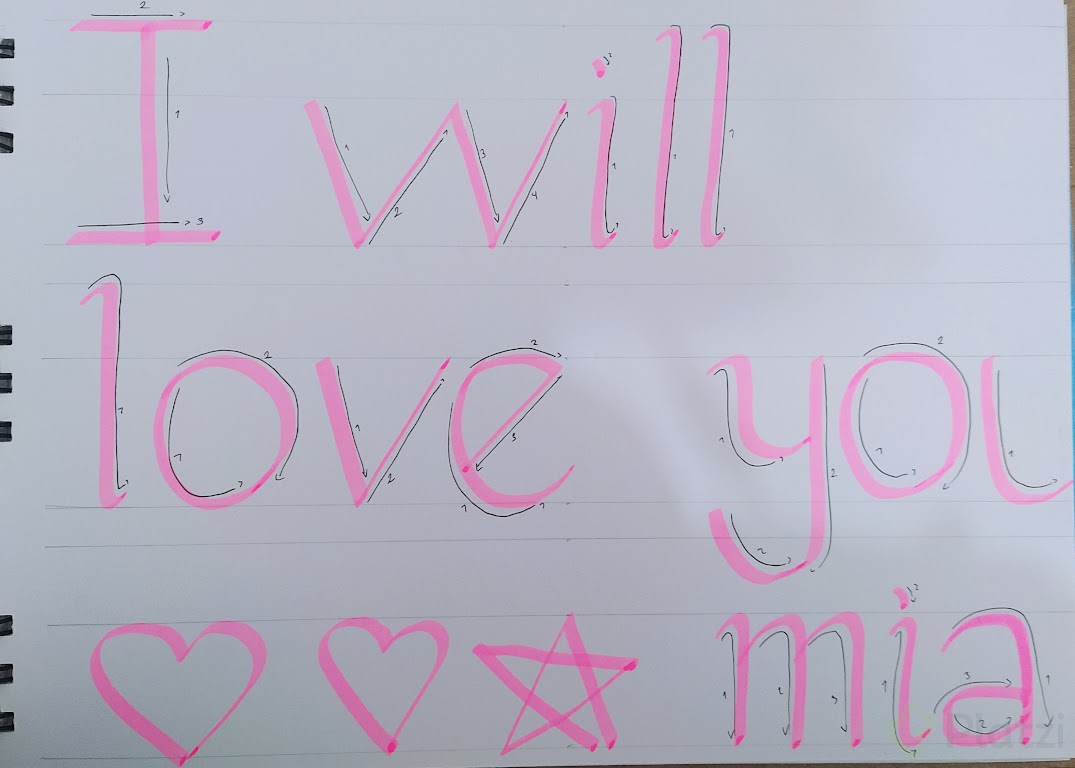 I will
love you
mia
Platzi